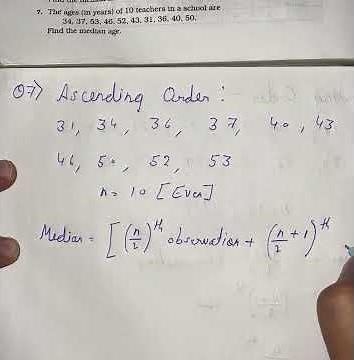 7. The ages (in years) of 10 teachers in a school are
34, 37, 53, 46, 52, 43, 31, 36, 40, 50.
Find the median age.
Q7) Ascending Order :
31, 34, 36, 37, 40, 43
46, 50, 52, 53
n = 10 [Even]
Median = [(n/2)th observation + (n/2 + 1)th